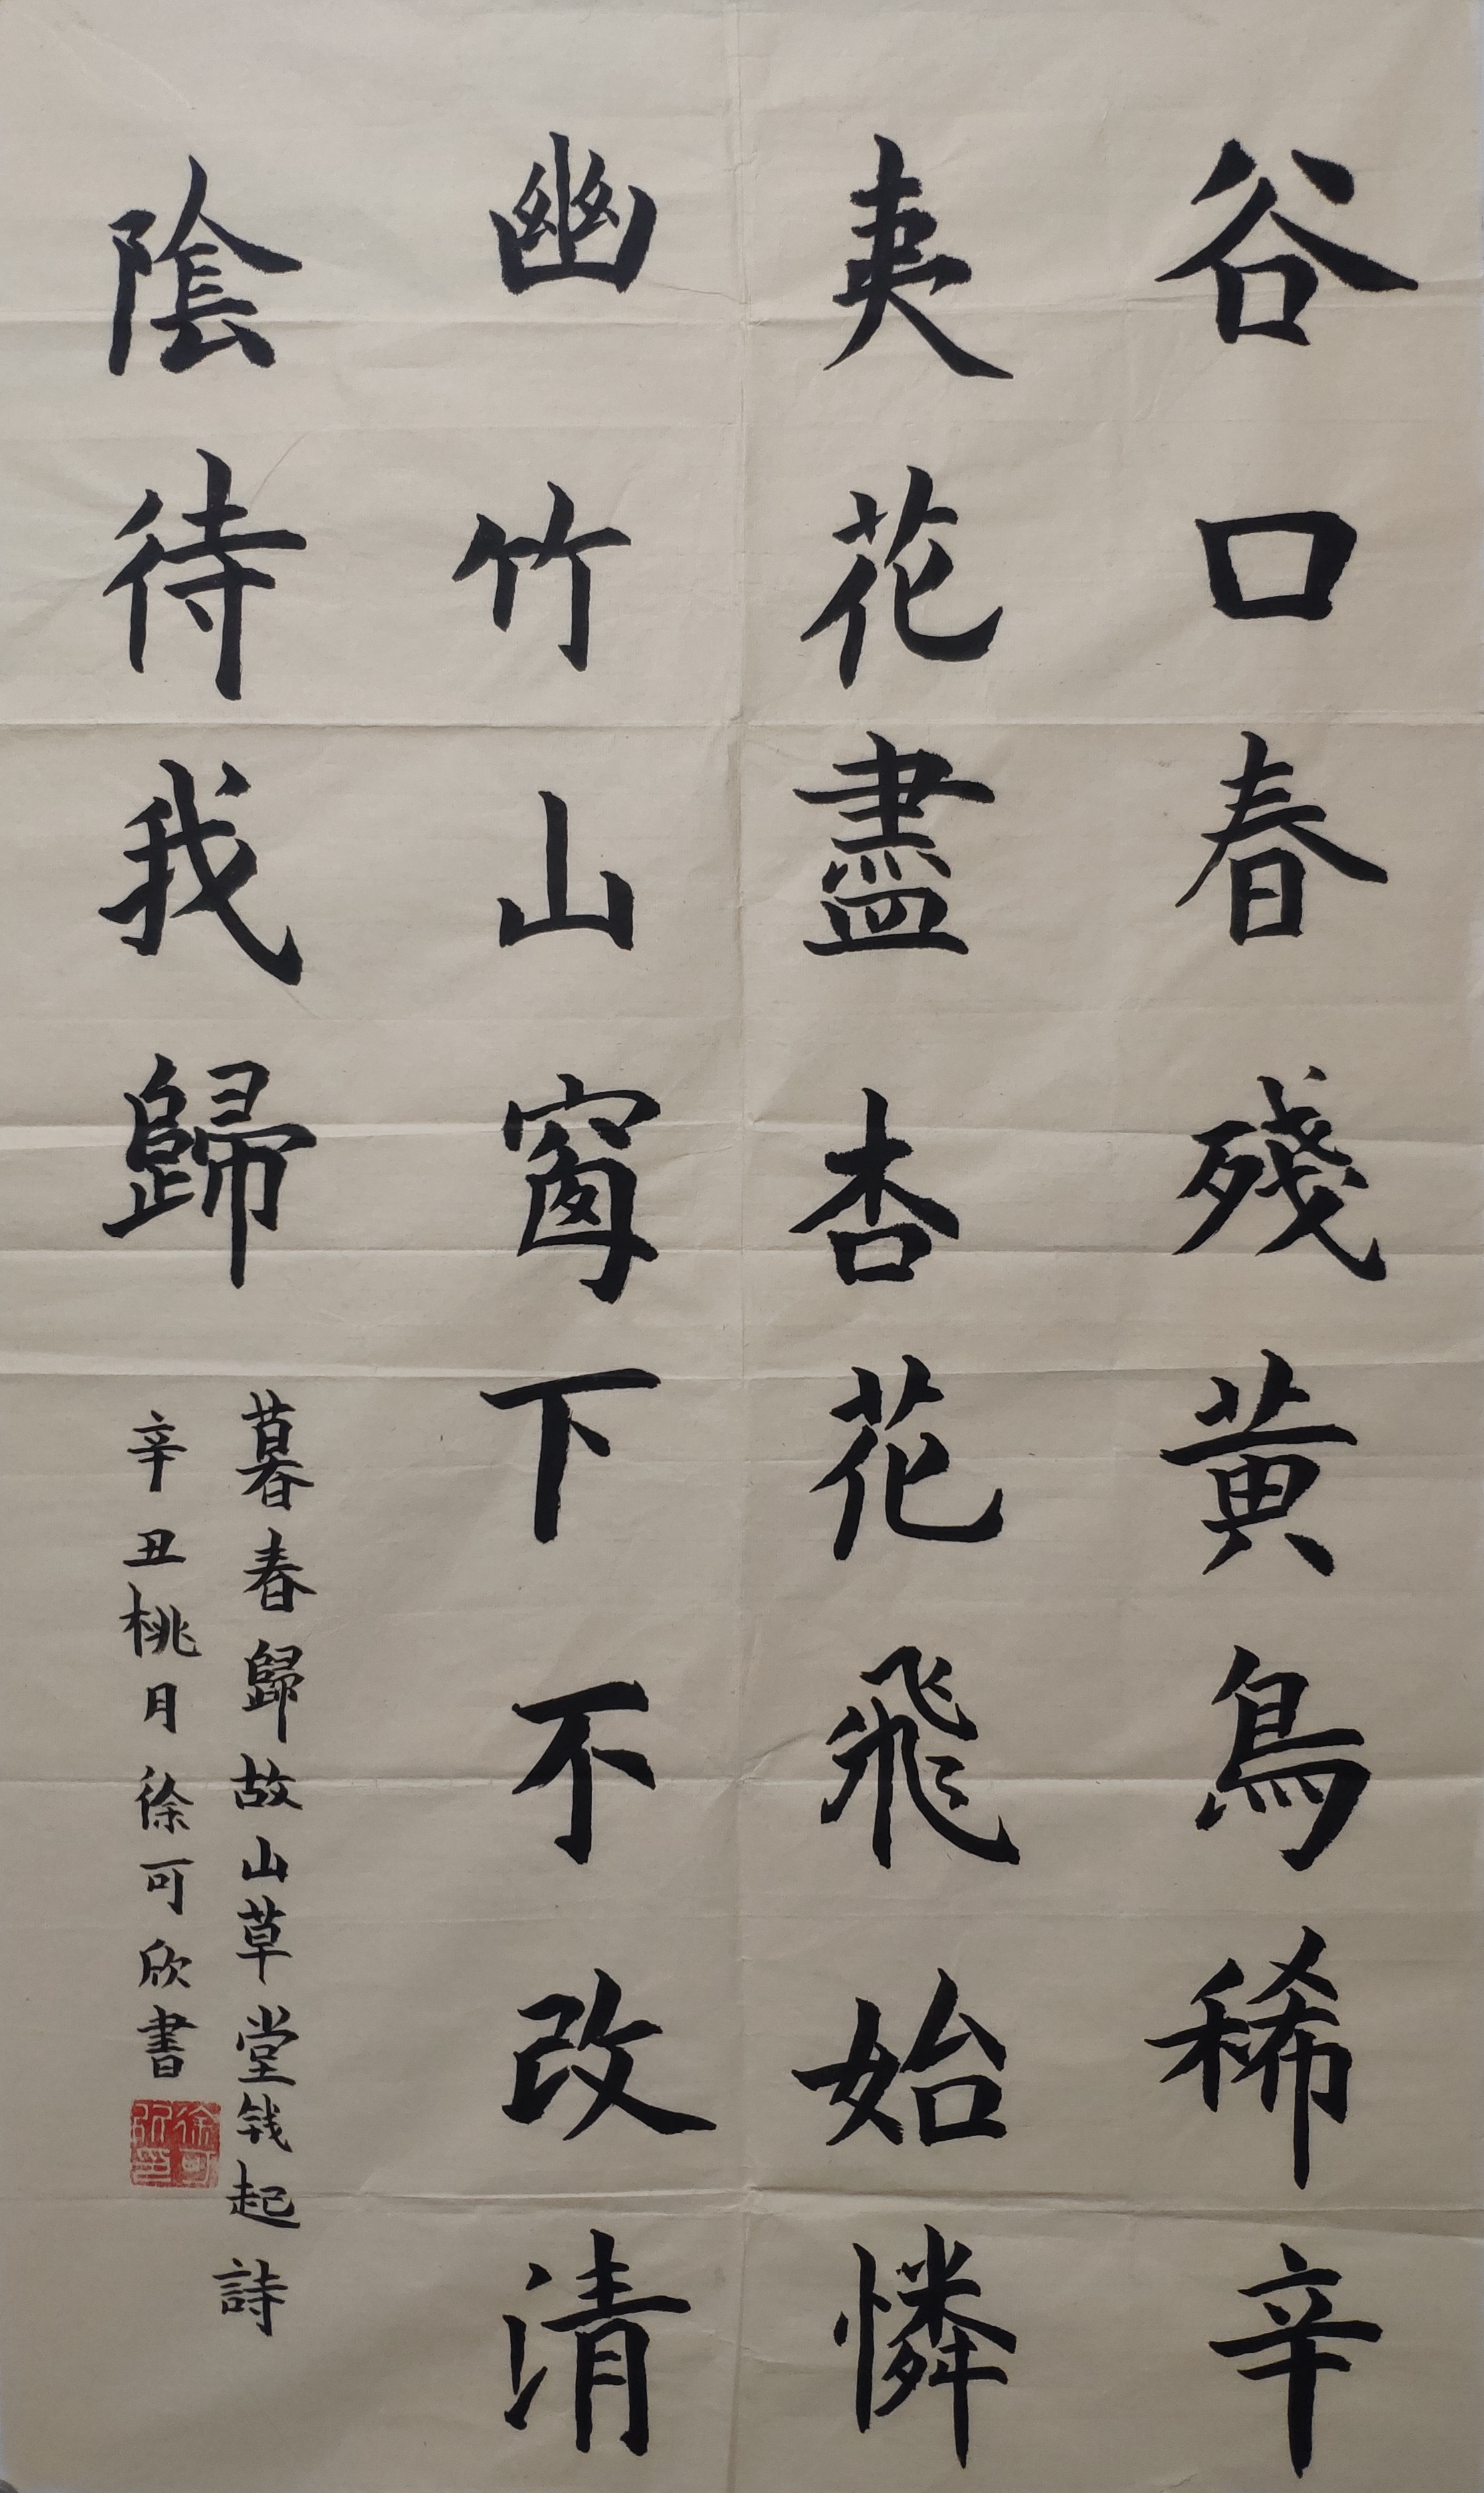 谷口春殘黃鳥稀辛
夷花盡杏花飛始憐
幽竹山窗下不改清
陰待我歸
暮春歸故山草堂钱起詩
辛丑桃月徐可欣書
徐可欣印